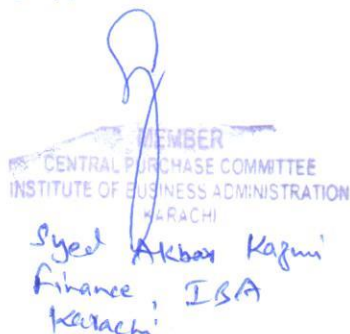 MEMBER
CENTRAL PURCHASE COMMITTEE
INSTITUTE OF BUSINESS ADMINISTRATION
KARACHI
Syed Akbar Kazmi
Finance, IBA
Karachi